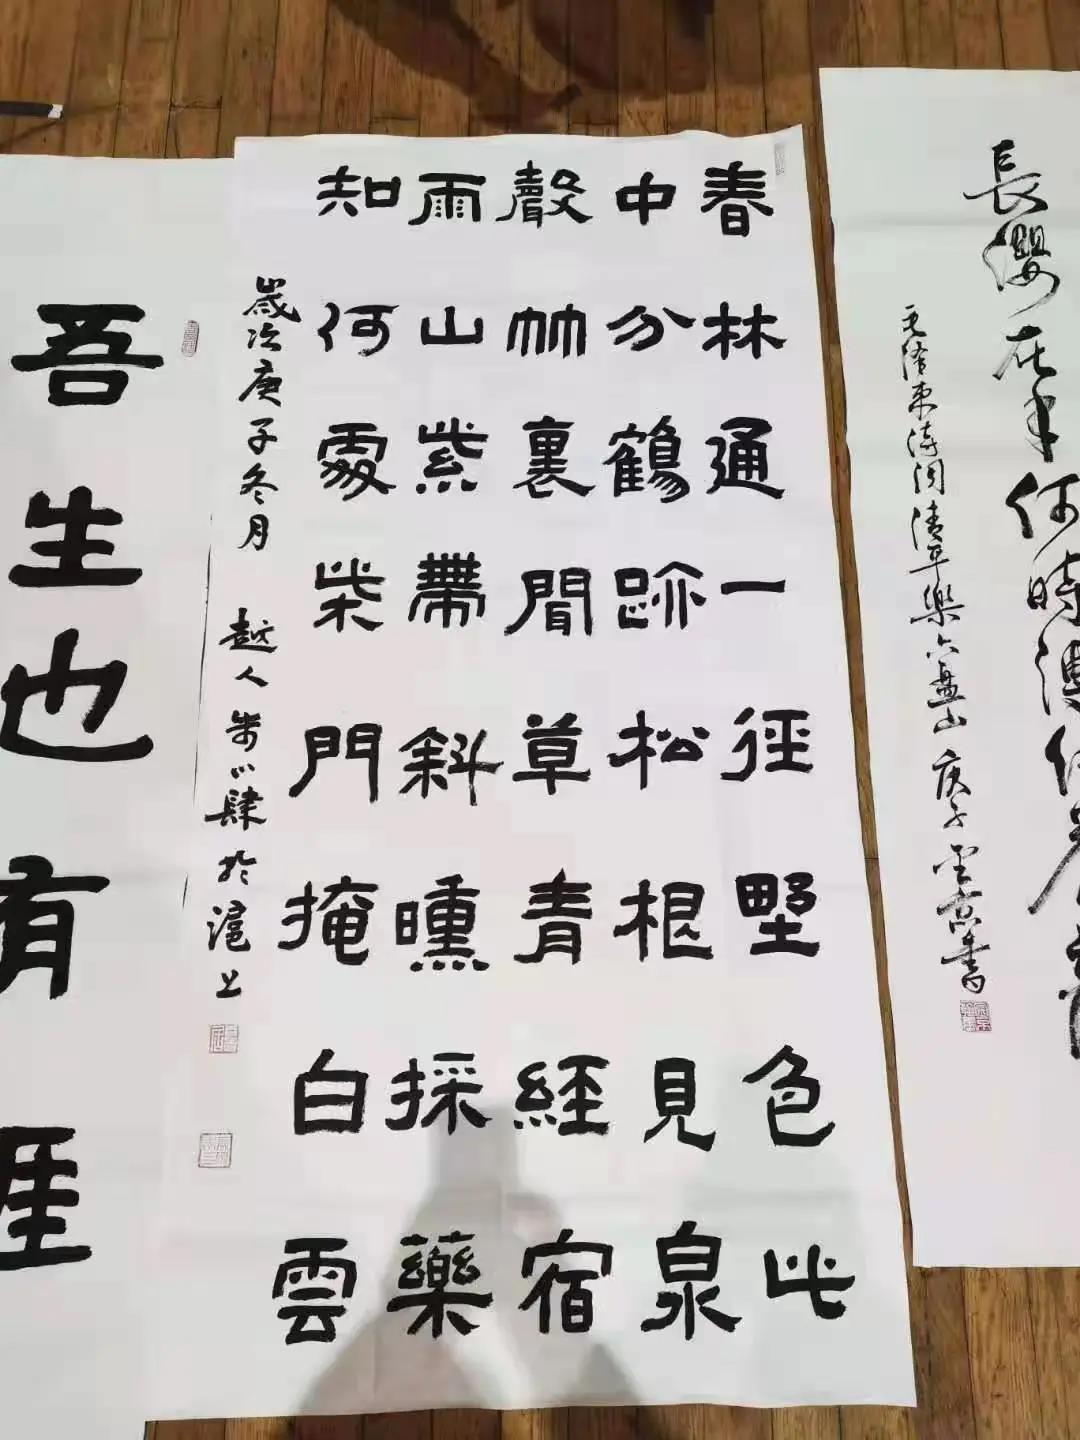 長纓在手何時縛住蒼
毛澤東詩詞清平樂六盤山 庚子書
春林通一徑野色此
中分鶴跡松根見泉
聲竹裏聞草青經宿
雨山紫帶斜曛採藥
知何處柴門掩白雲
歲次庚子冬月 越人肆於滬上
吾生也有涯